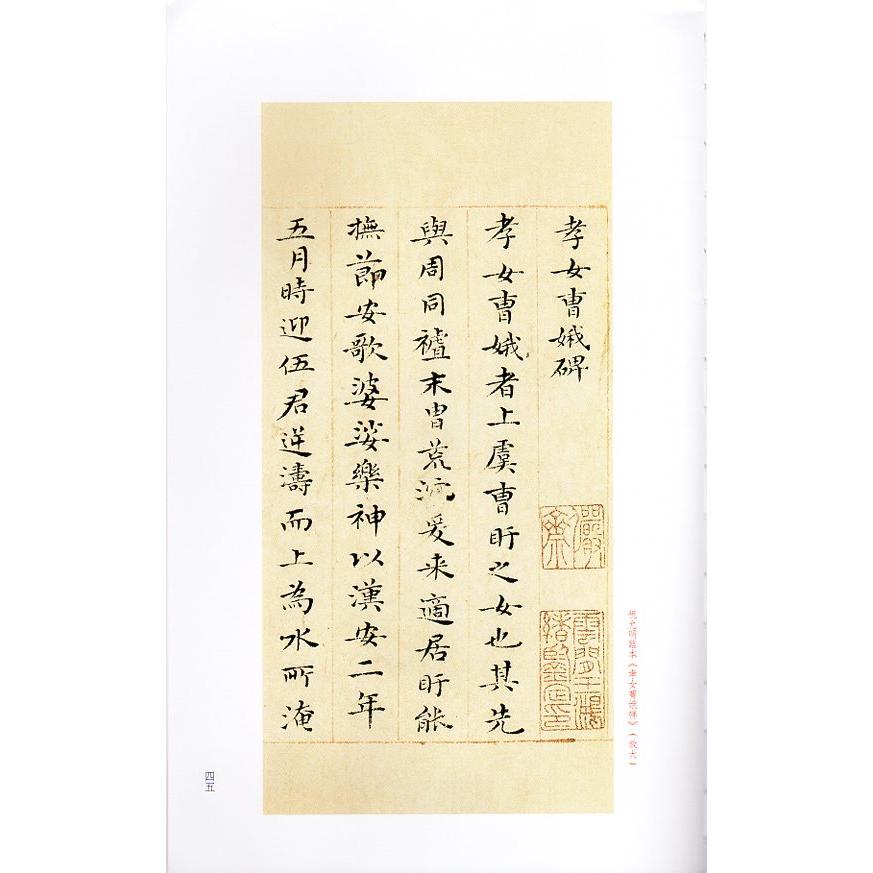 祝允明臨本《孝女曹娥碑》（放大）
孝女曹娥碑
儼齋
雲間王鴻緒鑒定印
孝女曹娥者上虞曹盱之女也其先
與周同末胄荒爰来適居盱能
撫節安歌婆娑樂神以漢安二年
五月時迎伍君逆濤而上為水所淹
四五